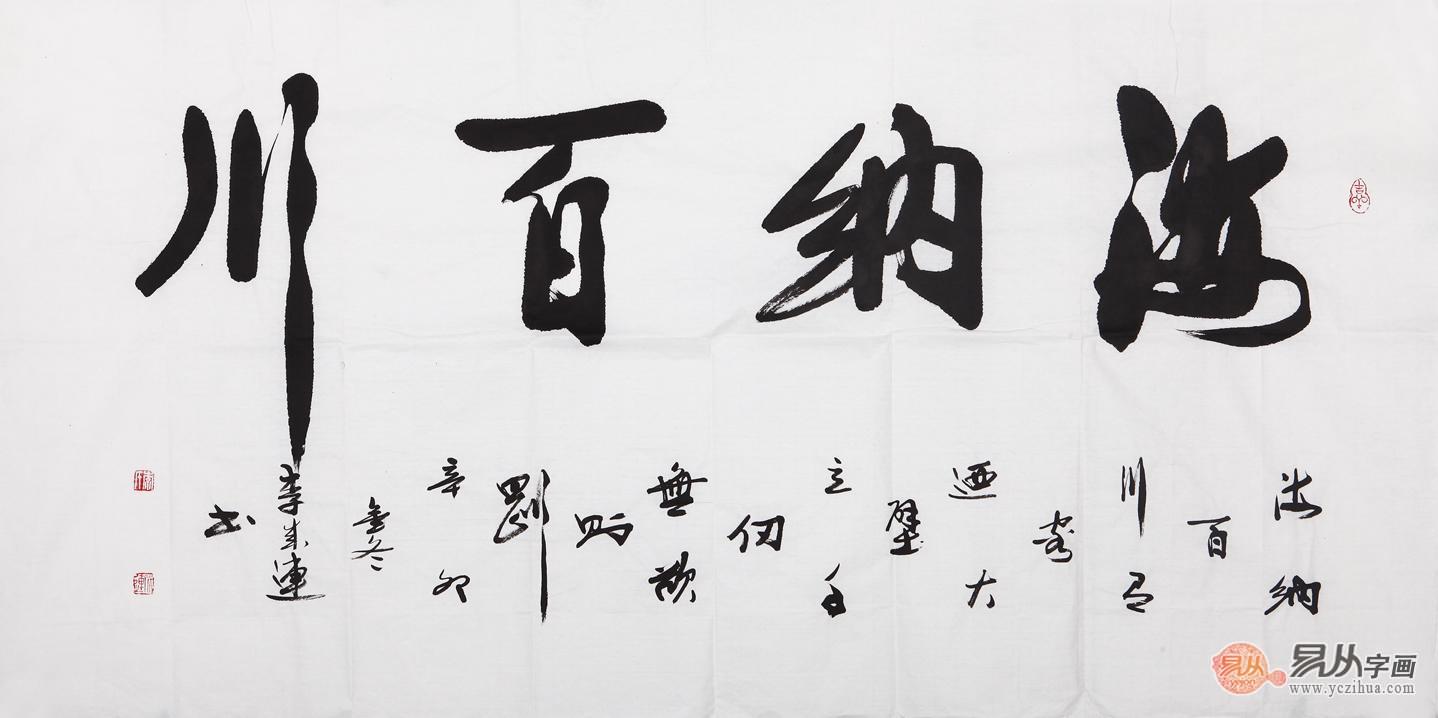 海纳百川
海纳
百
川有
容
迺大
壁
立千
仞
無欲
则
刚
辛卯
冬
李成連
书
易从字画
www.yczihua.com